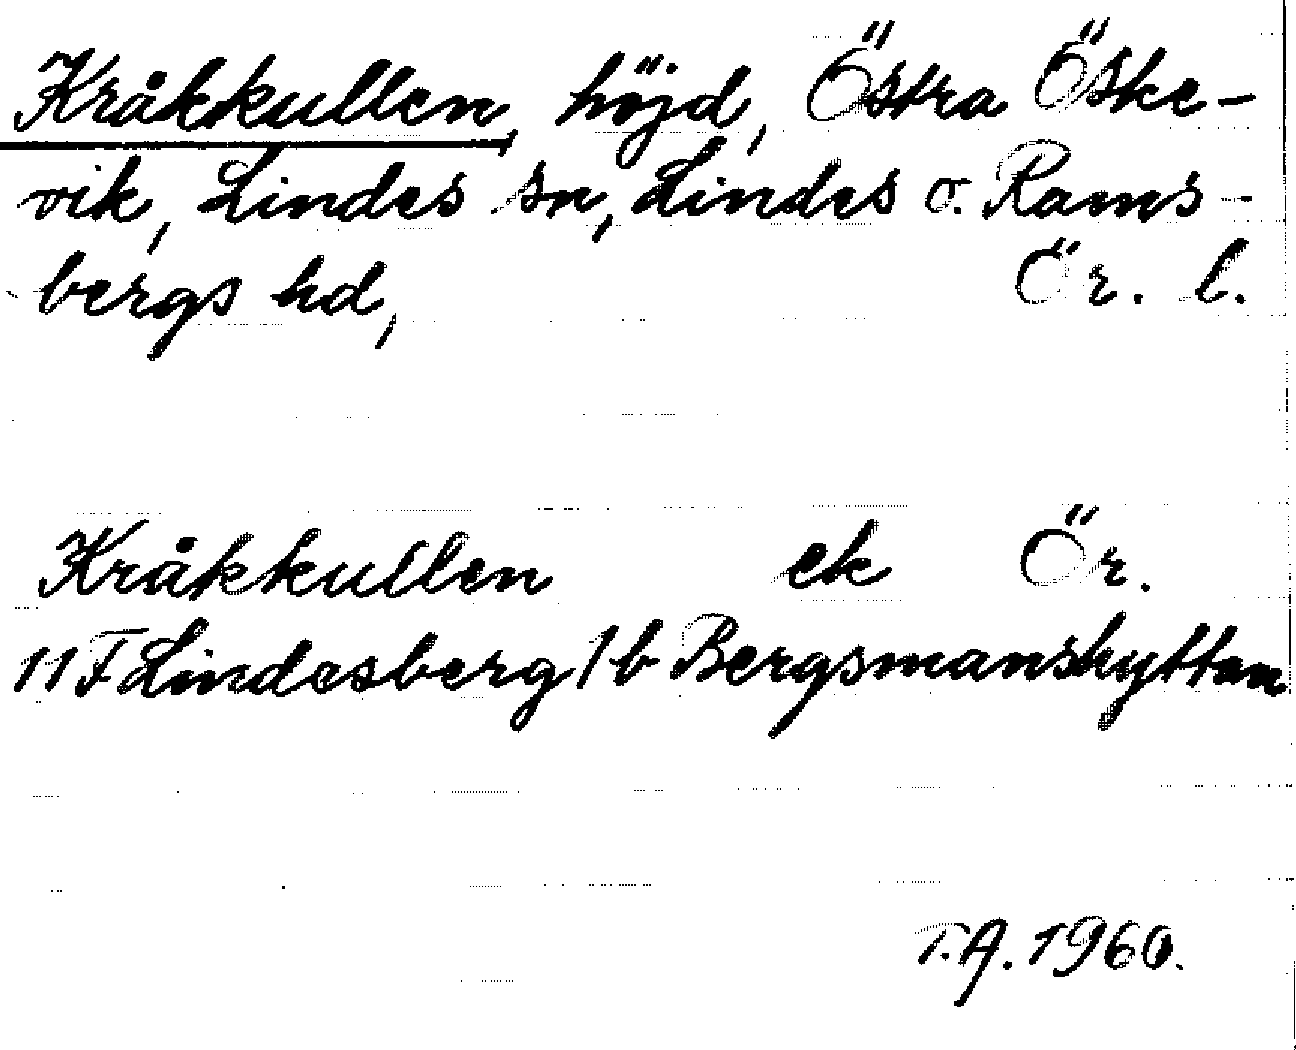 Kråkkullen, höjd, Östra Öske-
vik, Lindes sn, Lindes o. Rams-
bergs hd, Ör. l.
Kråkkullen ek Ör.
11 F Lindesberg 1 b Bergsmanshyttan
T.A. 1960.